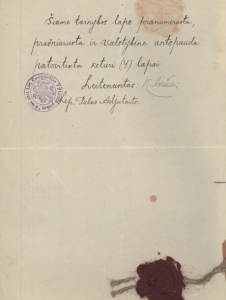 Šiame tarnybos lape pranumeruota,
prašniuruota ir valstybine antspauda
patvirtinta keturi (4) lapai
Leitenantas
Adjutantas